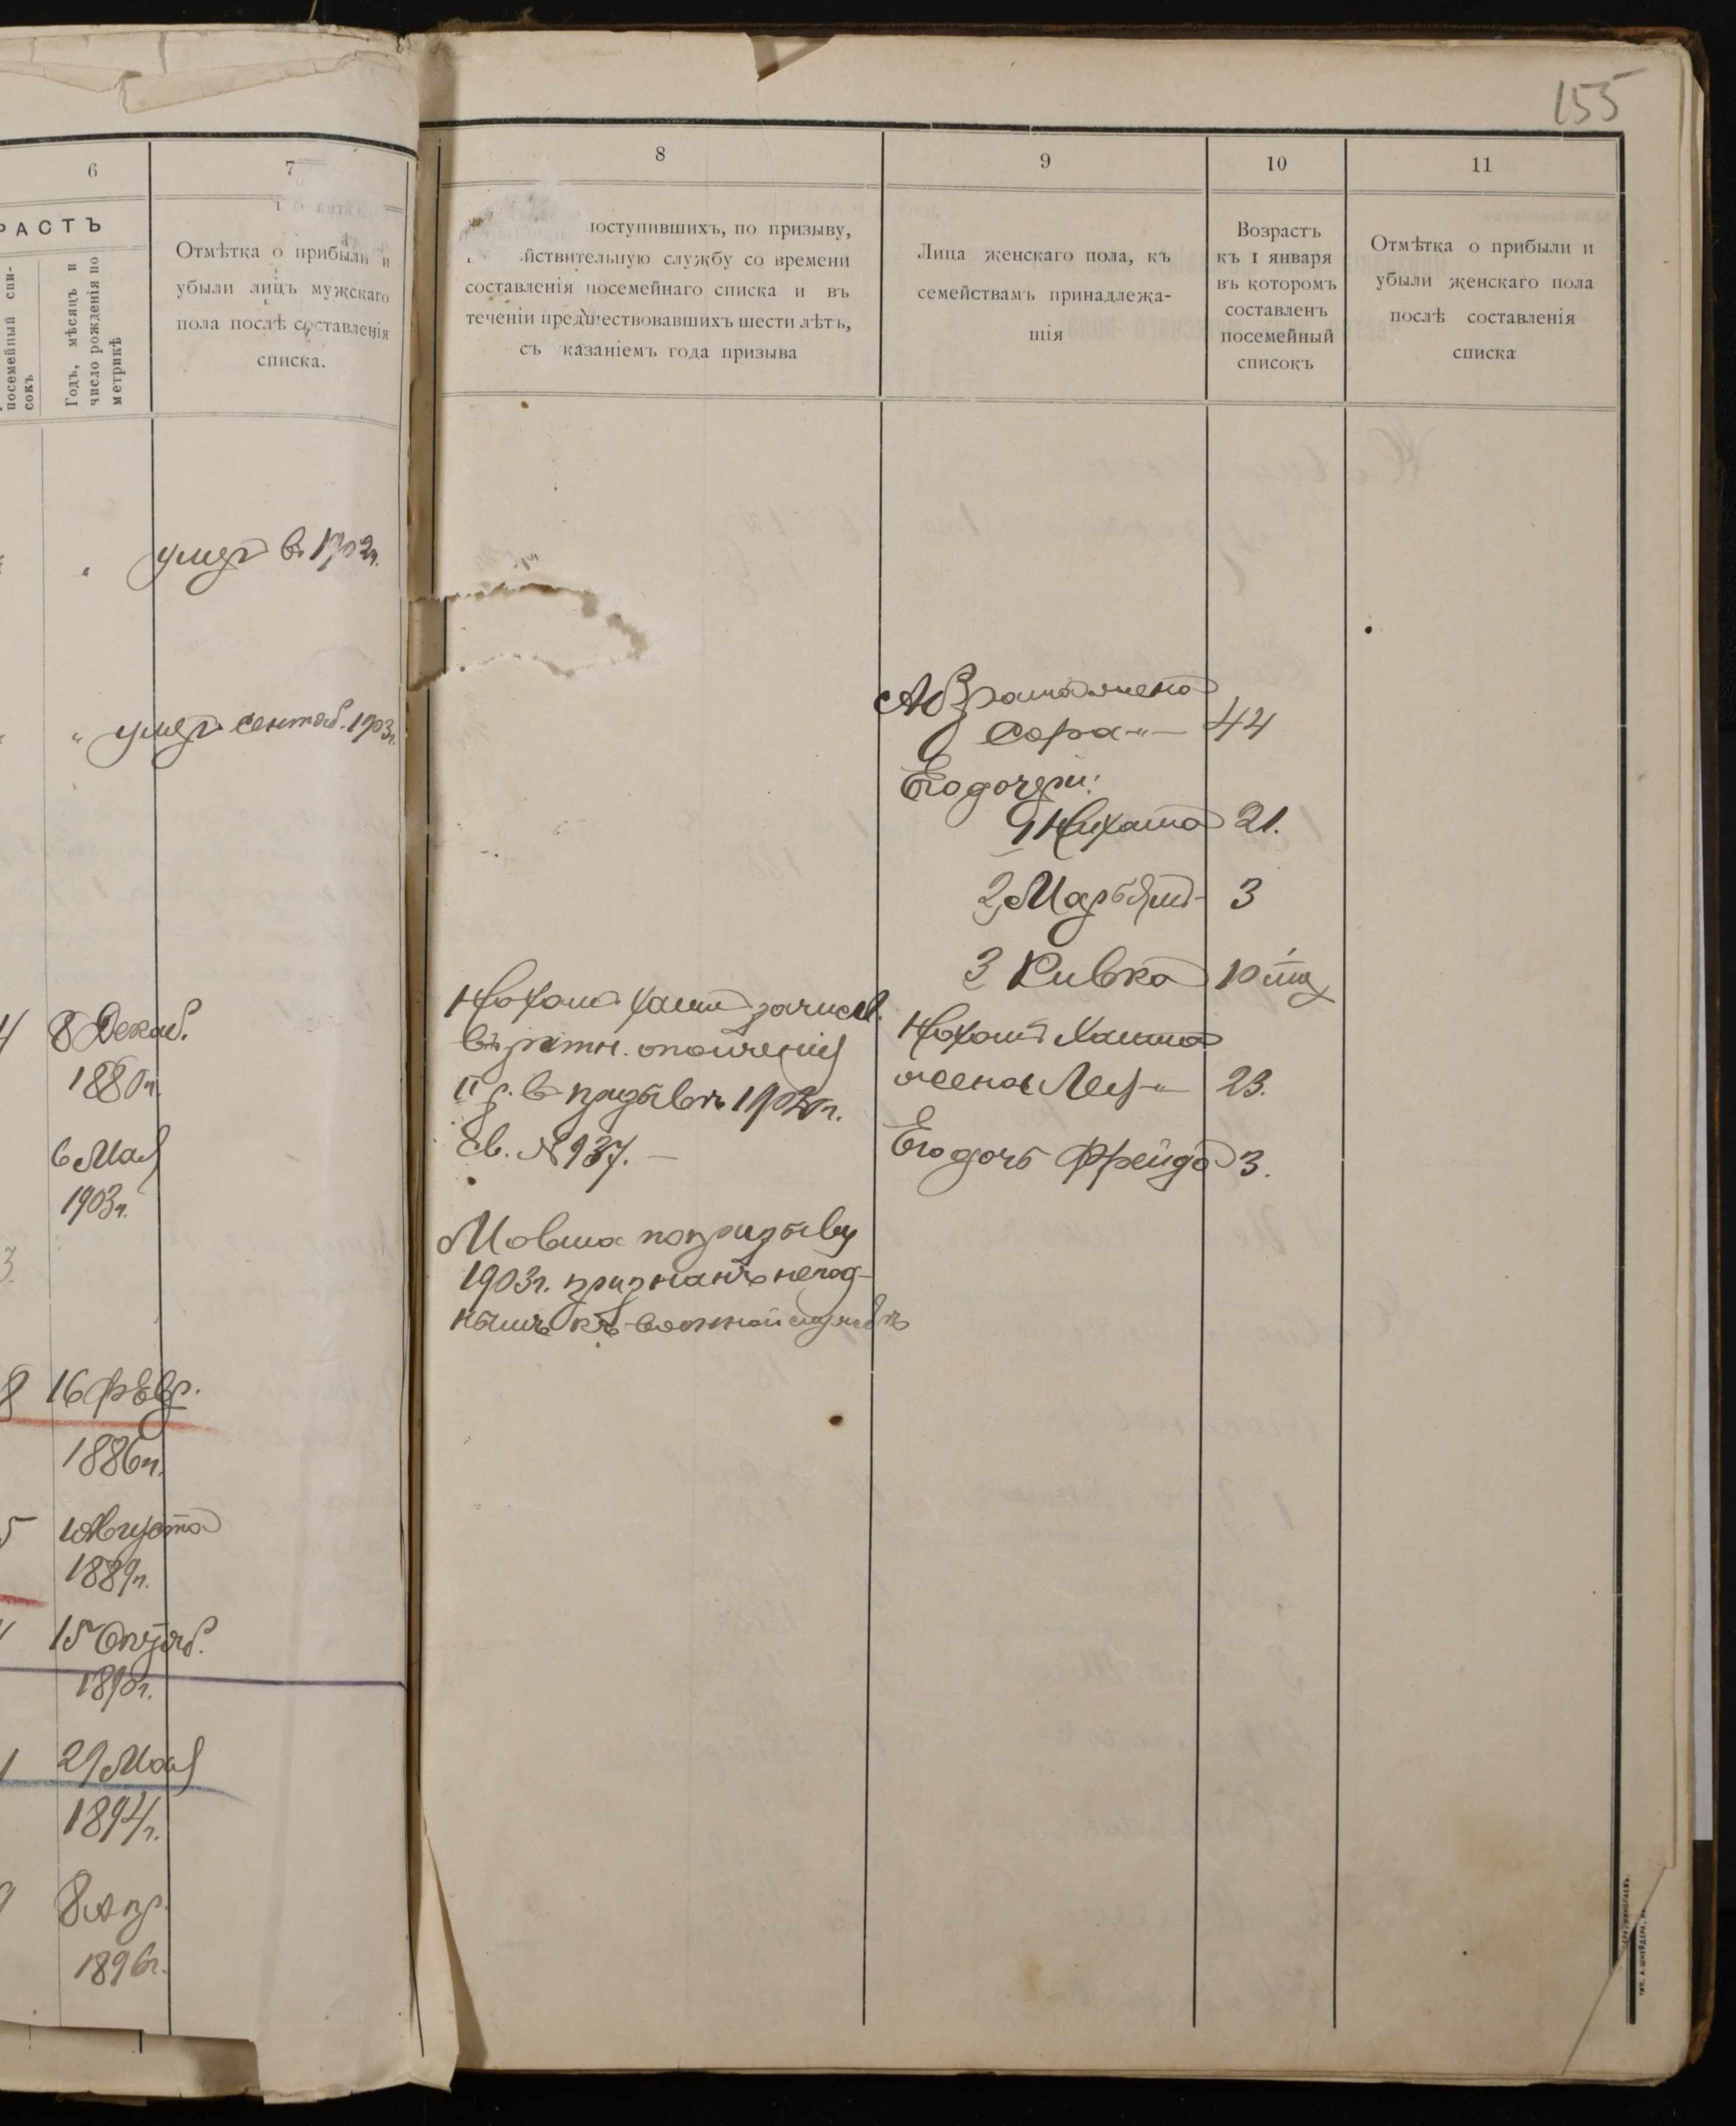 155
6
7
8
9
10
11
РАСТЪ
посемейный спи-
сокъ
Годъ, мѣсяцъ и
число рожденія по
метрикѣ
Отмѣтка о прибыли и
убыли лицъ мужскаго
пола послѣ составленія
списка.
поступившихъ, по призыву,
йствительную службу со времени
составленія посемейнаго списка и въ
теченіи предшествовавшихъ шести лѣтъ,
съ казаніемъ года призыва
Лица женскаго пола, къ
семействамъ принадлежа-
щія
Возрастъ
къ 1 января
въ которомъ
составленъ
посемейный
списокъ
Отмѣтка о прибыли и
убыли женскаго пола
послѣ составленія
списка
умер в 1902г.
" умер сентяб. 1903г.
Абрама жена
Сора -"- 44
Его дочери:
1 Нихама 21.
2, Марьям 3
3 Ривка 10
4 8 Декаб.
1880г.
6 Мая
1903г.
3
Нохом Хаим зачисл.
въ ратн. ополченія
II р. в призывъ 1902г.
Св. № 937. —
Нохом Хаима
жена Лея -"- 23.
Его дочь Фрейда 3.
Мовша по призыву
1903г. признанъ негод-
нымъ къ военной службѣ
8 16 февр.
1886г.
5 10 Августа
1889г.
15 Октяб.
1890г.
1 29 Мая
1894г.
9 8 Апр.
1896г.